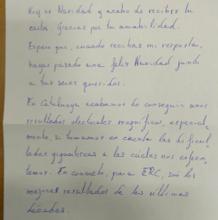 Hoy es Navidad y acabo de recibir tu
carta. Gracias por tu amabilidad.
Espero que, cuando recibas mi respuesta,
hayas pasado una feliz Navidad junto
a tus seres queridos.
En Catalunya acabamos de conseguir unos
resultados electorales magníficos, especial-
mente, si tenemos en cuenta las dificul-
tades gigantescas a las cuales nos enfren-
tamos. En concreto, para ERC, son los
mejores resultados de las últimas
décadas.